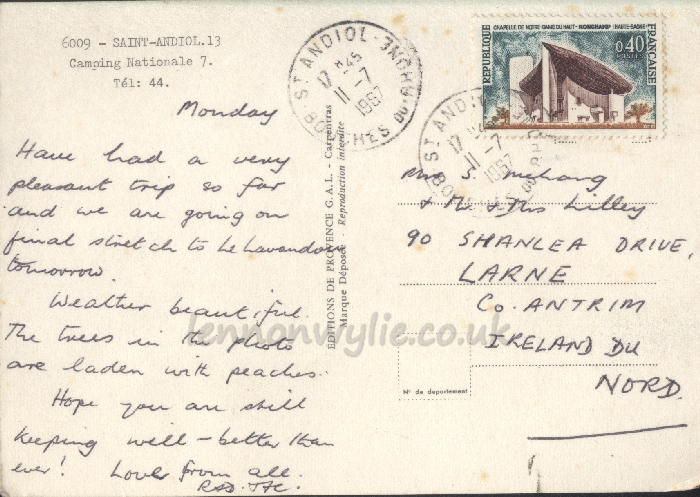 6009 - SAINT-ANDIOL.13
Camping Nationale 7.
Tél: 44.
Monday
Have had a very
pleasant trip so far
and we are going on
final stretch to Le Lavandou
tomorrow.
Weather beautiful.
The trees in the photo
are laden with peaches.
Hope you are still
keeping well - better than
ever! Love from all.
EDITIONS DE PROVENCE G.A.L. - Carpentras
Marque Déposée - Reproduction interdite
ST ANDIOL - BOUCHES DU RHONE
17 H45
11-7
1967
CHAPELLE DE NOTRE-DAME-DU-HAUT - RONCHAMP (HAUTE-SAÔNE)
REPUBLIQUE FRANÇAISE
0,40
POSTES
ST ANDIOL
17 H45
11-7
1967
BOUCHES DU RHONE
Mrs S.
& Mr & Mrs Lilley
90 SHANLEA DRIVE,
LARNE
Co. ANTRIM
IRELAND DU
NORD.
N° de département
lennonwylie.co.uk